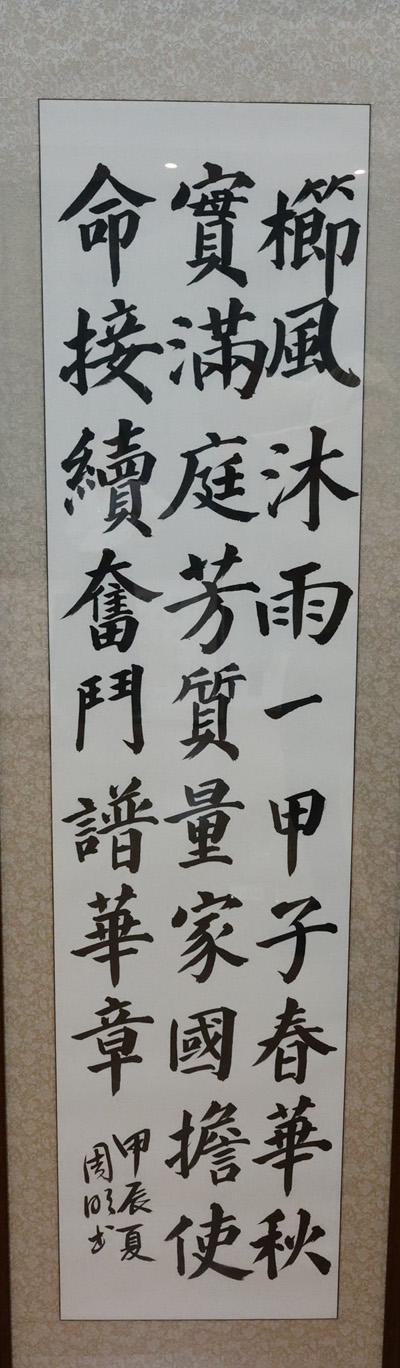 櫛風沐雨一甲子春華秋
實滿庭芳質量家國擔使
命接續奮鬥譜華章
甲辰夏
周明书